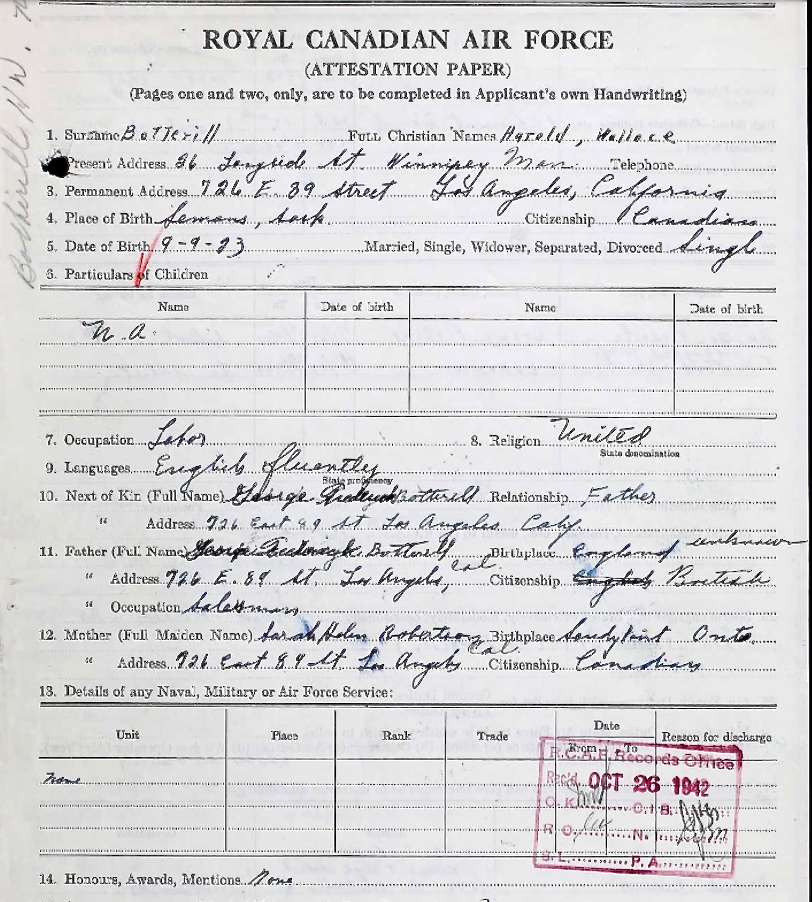 ROYAL CANADIAN AIR FORCE
(ATTESTATION PAPER)
(Pages one and two, only, are to be completed in Applicant's own Handwriting)
1. Surname Botterill Full Christian Names Harold, Wallace
Present Address 36 Langside St. Winnipeg Man. Telephone
3. Permanent Address 726 E. 89 street Los Angeles, California
4. Place of Birth Semans, Sask Citizenship Canadian
5. Date of Birth 9-9-23 Married, Single, Widower, Separated, Divorced Singl
6. Particulars of Children
Name Date of birth Name Date of birth
N.A.
7. Occupation Labor 8. Religion United
State denomination
9. Languages English fluently
State proficiency
10. Next of Kin (Full Name) George Botterill Relationship Father
" Address 726 East 89 St Los Angeles Calif.
11. Father (Full Name) George Botterill Birthplace England unknown
" Address 726 E. 89 St. Los Angeles, Cal. Citizenship English British
" Occupation Salesman
12. Mother (Full Maiden Name) Sarah Helen Robertson Birthplace Onto.
" Address 726 East 89 St Los Angels Cal. Citizenship Canadian
13. Details of any Naval, Military or Air Force Service:
Unit Place Rank Trade Date Reason for discharge
From To
None
R.C.A.F. Records Office
Rec'd OCT 26 1942
O.K. C.I.B.
R.O. N.
S.L. P.A.
14. Honours, Awards, Mentions None